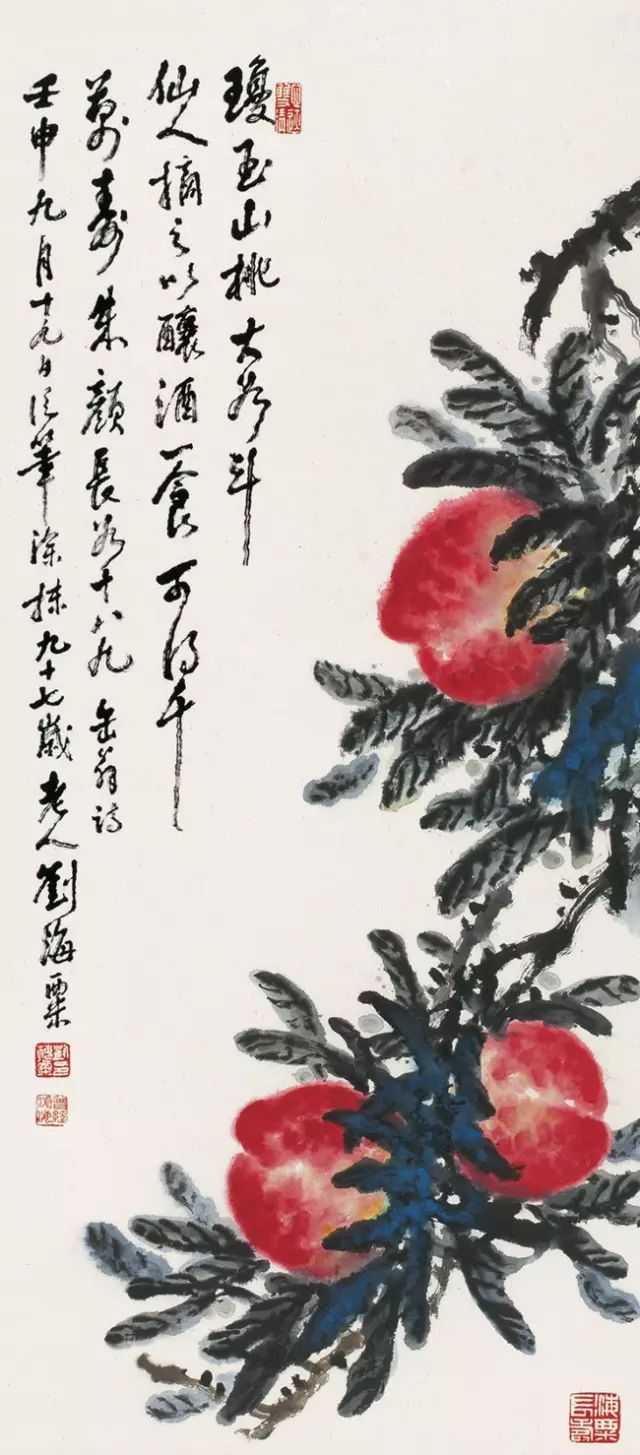 瓊玉山桃大如斗
仙人摘之以釀酒一食可得千
萬壽朱顏長如十八九 缶翁詩
壬申九月十九日信筆塗抹九十七歲老人劉海粟
曾經滄海
海粟長壽